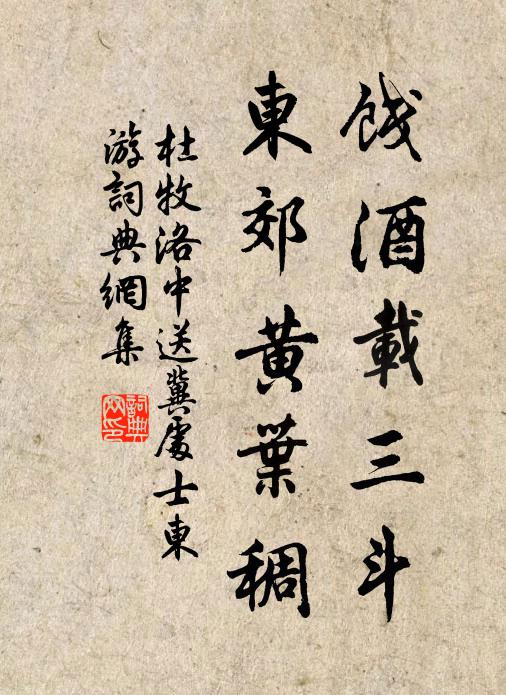 餞酒載三斗
東郊黃葉稠
杜牧洛中送冀處士東
游詞典網集
詞典網印